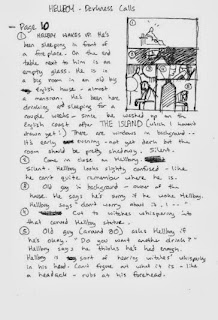 HELLBOY - Darkness Calls
- Page 6
① HELLBOY wakes up. He's
been sleeping in front of
a fireplace. On the end
table next to him is an
empty glass. He is in
a big room in an old
English house - almost
a mansion. He's been here
drinking and sleeping for a
couple weeks - since he washed up on the
English coast after THE ISLAND (which I haven't
drawn yet!) There are windows in background --
It's early evening - not yet dark but the
room should be pretty shadowy. Silent.
② Come in close on Hellboy.
Silent. Hellboy looks slightly confused - like
he can't quite remember where he is.
③ Old guy in background - owner of the
house. He says he's sorry if he woke Hellboy.
Hellboy says "don't worry about it. I --"
④ Cut to witches whispering into
that carved Hellboy statue.
⑤ Old guy (around 80) asks Hellboy if
he's okay. "Do you want another drink?"
Hellboy says he thinks he's had enough.
Hellboy is sort of hearing witches' whispering
in his head. Can't figure out what it is - like
a headache - rubs at his forehead.